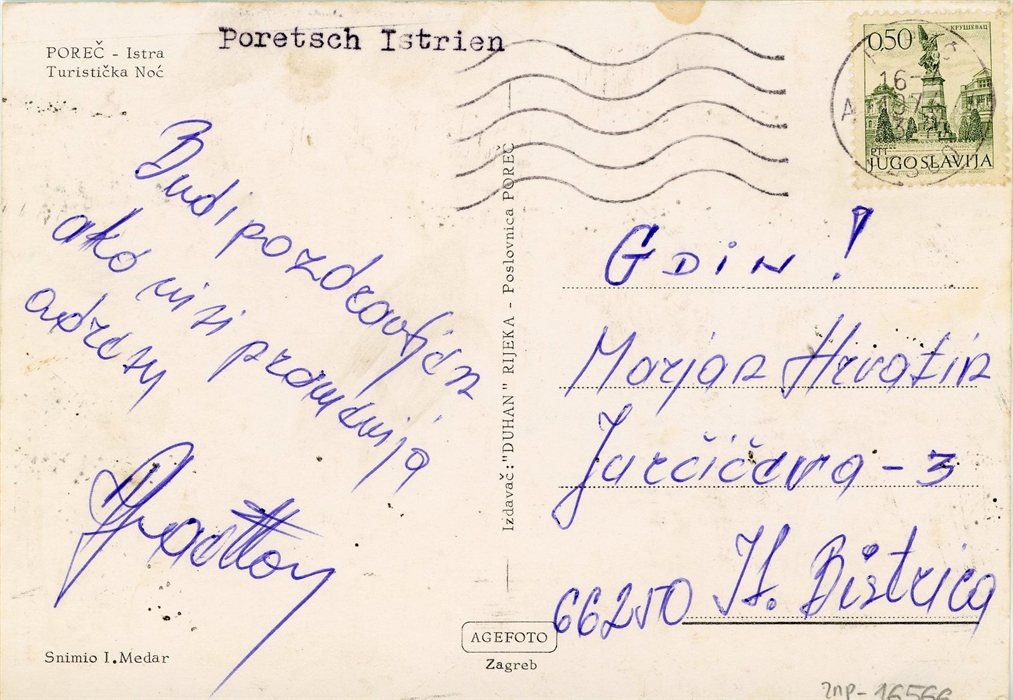 POREČ - Istra
Turistička Noć
Poretsch Istrien
КРУШЕВАЦ
0,50
16-
PTT
JUGOSLAVIJA
Budi pozdravljen
ako nisi promenija
adresu
Izdavač: "DUHAN" RIJEKA - Poslovnica POREČ
GDIN !
Marjan Hrvatin
Jurčičeva - 3
66250 Il. Bistrica
AGEFOTO
Zagreb
Snimio I. Medar
ZNP- 16566